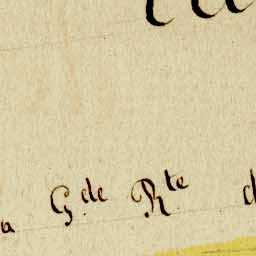 a Gde Rte d